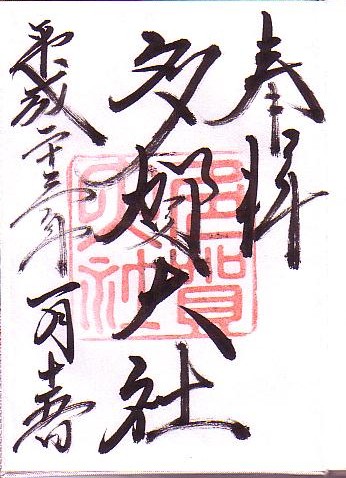 奉拝
多賀大社
平成二十三年一月十五日
多賀
大社